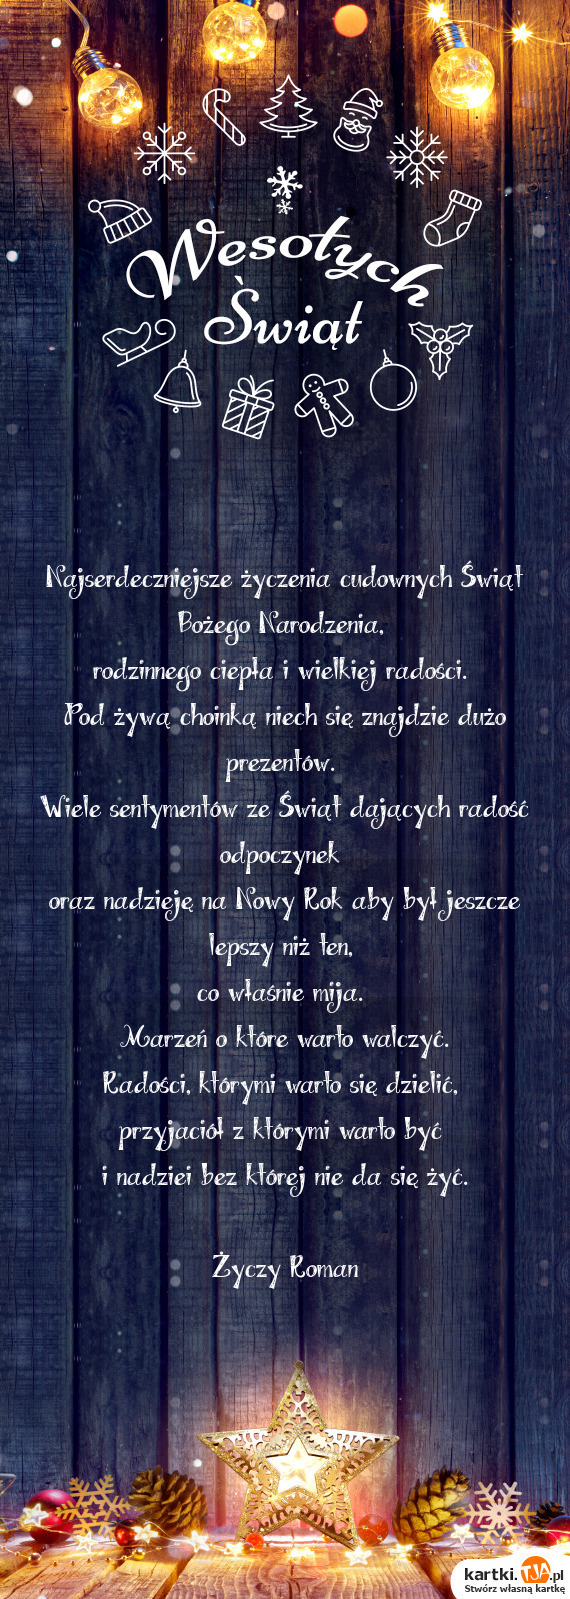 Wesołych
Świąt
Najserdeczniejsze życzenia cudownych Świąt
Bożego Narodzenia,
rodzinnego ciepła i wielkiej radości.
Pod żywą choinką niech się znajdzie dużo
prezentów.
Wiele sentymentów ze Świąt dających radość
odpoczynek
oraz nadzieję na Nowy Rok aby był jeszcze
lepszy niż ten,
co właśnie mija.
Marzeń o które warto walczyć.
Radości, którymi warto się dzielić,
przyjaciół z którymi warto być
i nadziei bez której nie da się żyć.
Życzy Roman
kartki.TJA.pl
Stwórz własną kartkę